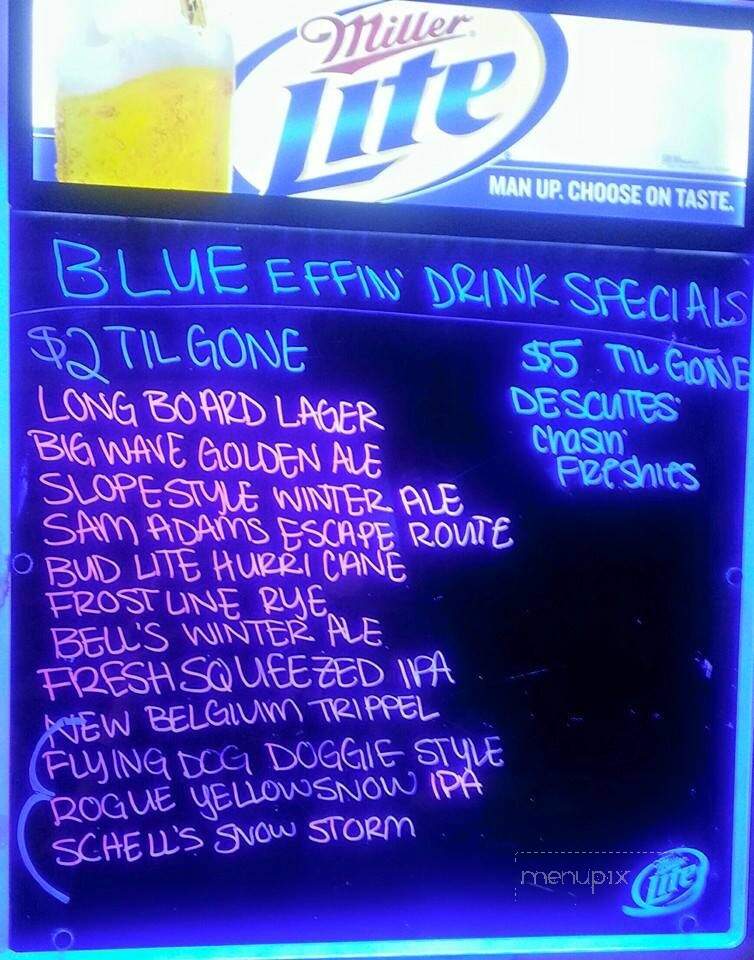 Miller
Lite
MAN UP. CHOOSE ON TASTE.
BLUE EFFIN' DRINK SPECIALS
$2 TIL GONE
LONG BOARD LAGER
BIG WAVE GOLDEN ALE
SLOPESTYLE WINTER ALE
SAM ADAMS ESCAPE ROUTE
BUD LITE HURRICANE
FROST LINE RYE
BELL'S WINTER ALE
FRESH SQUEEZED IPA
NEW BELGIUM TRIPPEL
FLYING DOG DOGGIE STYLE
ROGUE YELLOWSNOW IPA
SCHELL'S SNOW STORM
$5 TIL GONE
DESCUTES
Chasin'
FREShies
menupix
Miller
Lite